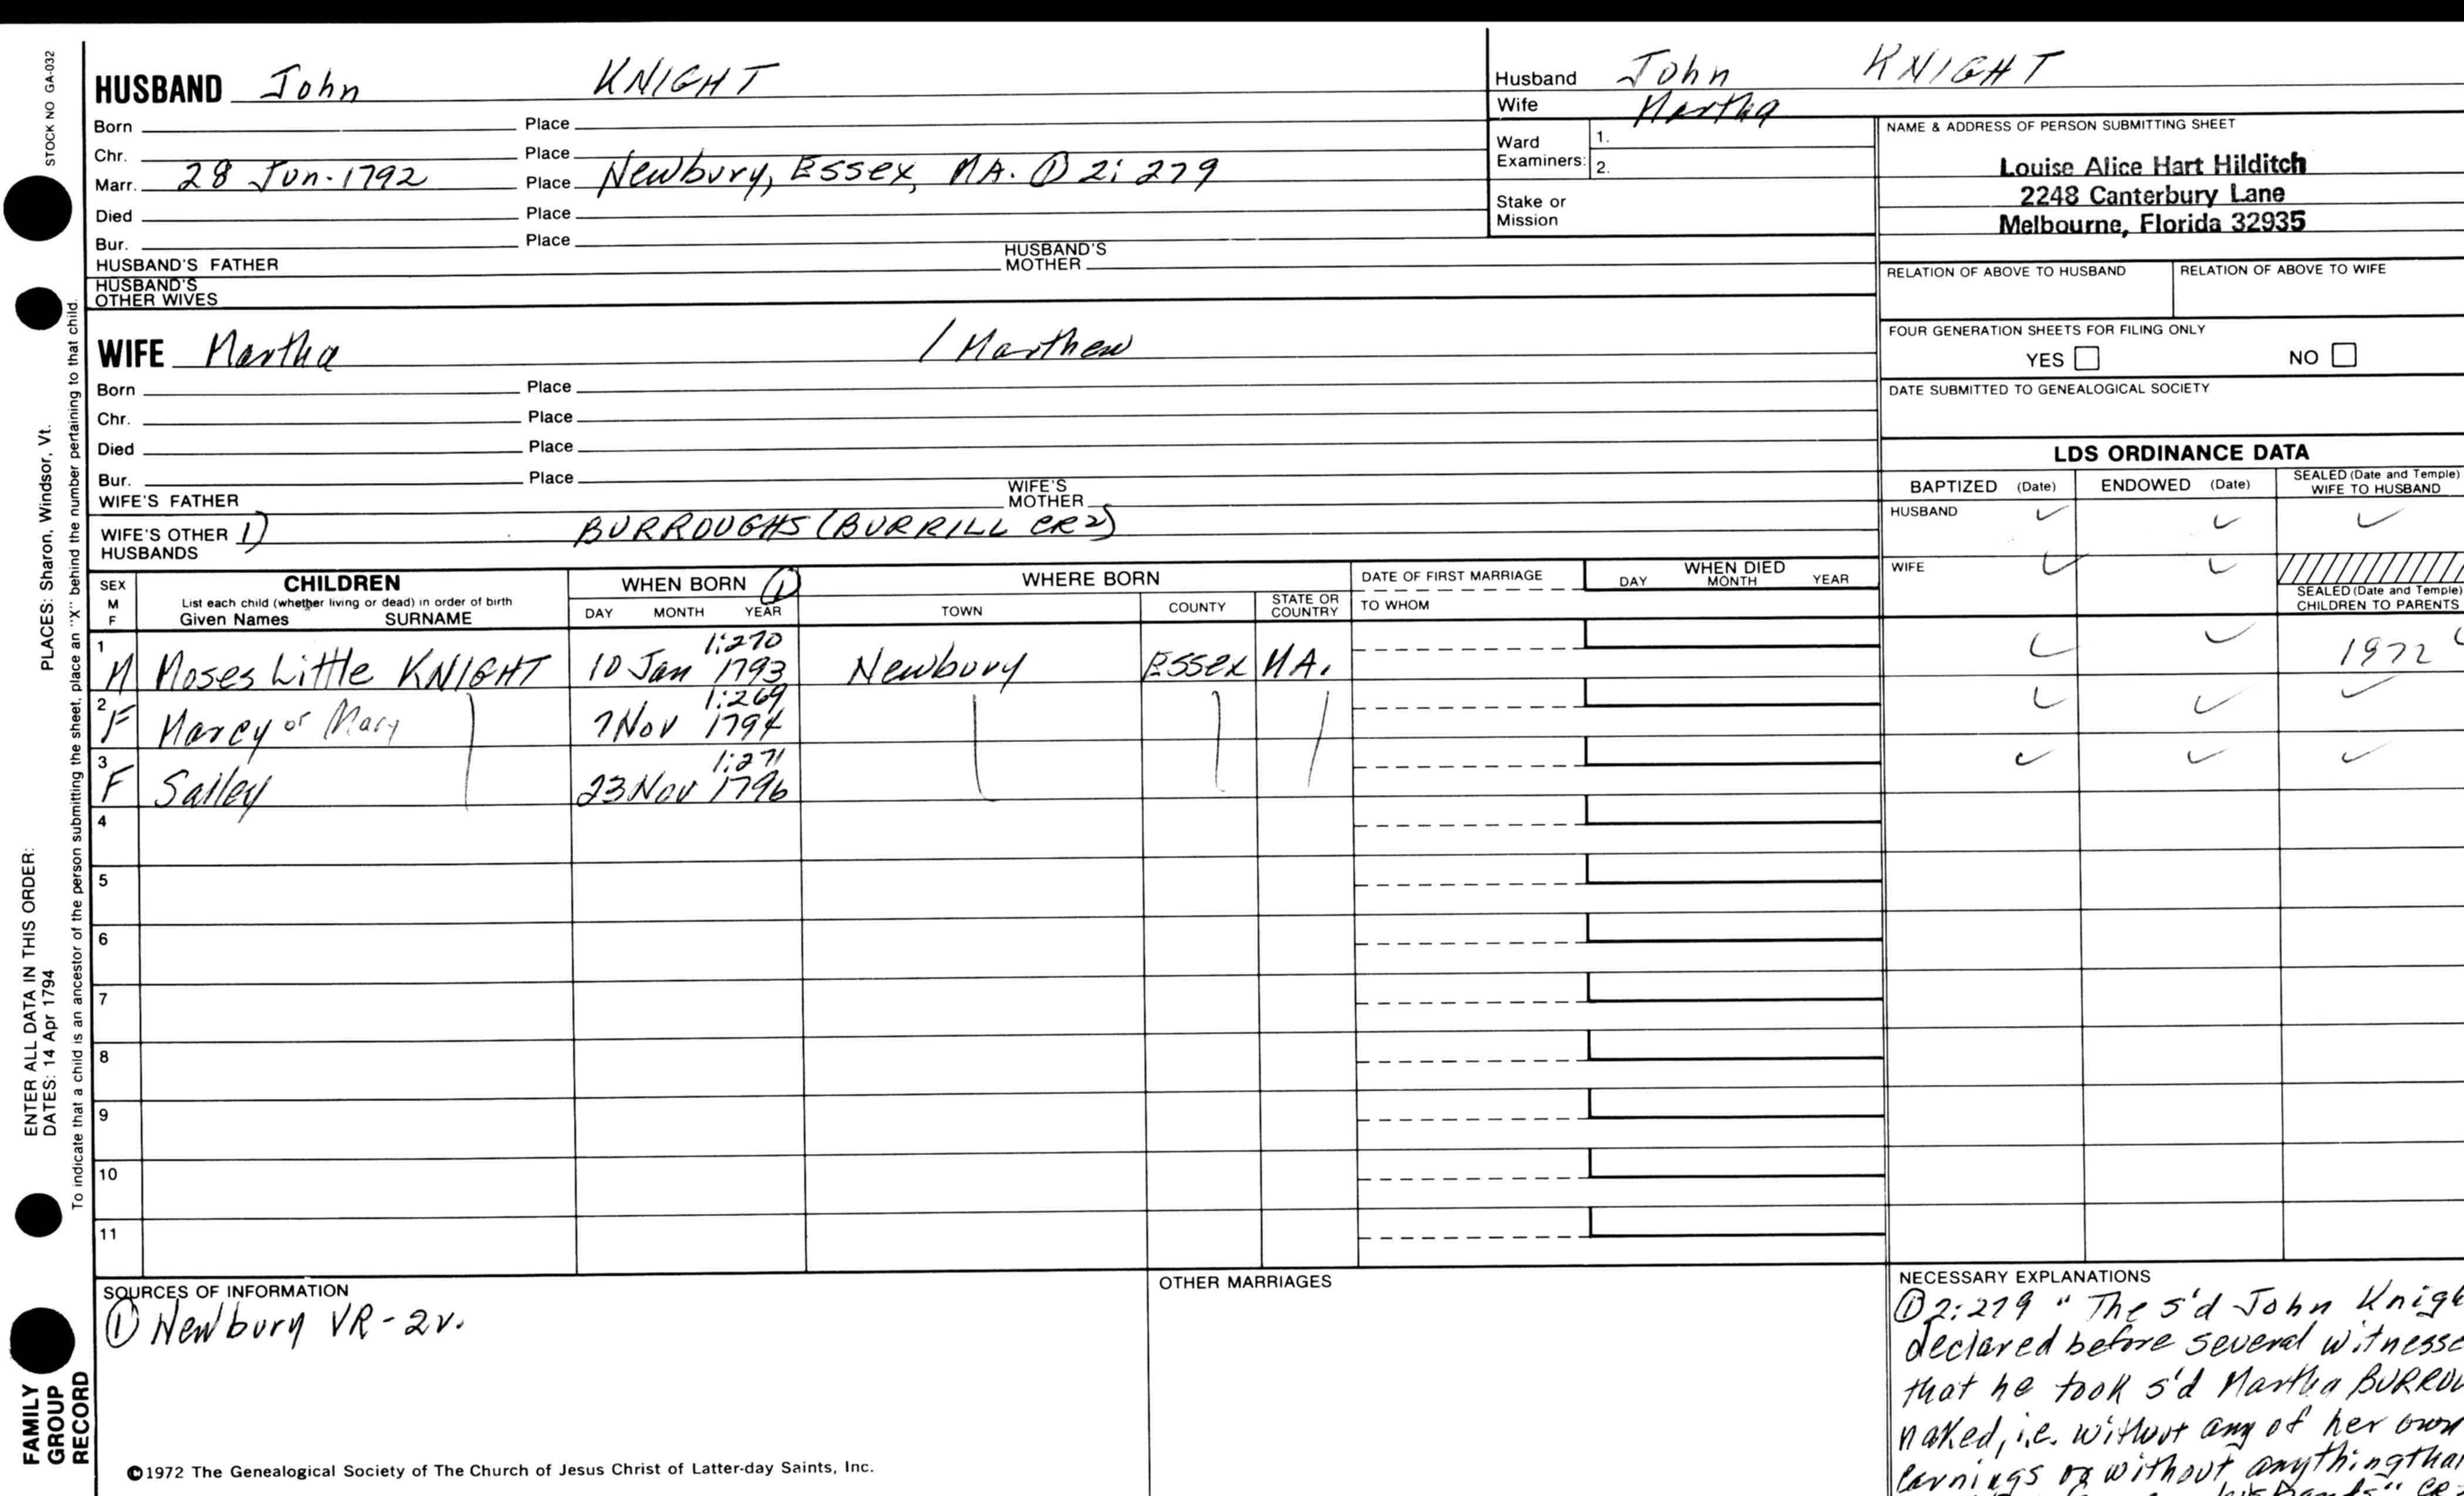 STOCK NO GA-032
HUSBAND John KNIGHT
Born Place
Chr. Place
Marr. 28 Jun. 1792 Place Newbury, Essex, MA. ① 2:279
Died Place
Bur. Place
HUSBAND'S FATHER HUSBAND'S MOTHER
HUSBAND'S OTHER WIVES
Husband John KNIGHT
Wife Martha
Ward Examiners: 1.
2.
Stake or Mission
NAME & ADDRESS OF PERSON SUBMITTING SHEET
Louise Alice Hart Hilditch
2248 Canterbury Lane
Melbourne, Florida 32935
RELATION OF ABOVE TO HUSBAND RELATION OF ABOVE TO WIFE
FOUR GENERATION SHEETS FOR FILING ONLY
YES NO
DATE SUBMITTED TO GENEALOGICAL SOCIETY
WIFE Martha / Marthew
Born Place
Chr. Place
Died Place
Bur. Place
WIFE'S FATHER WIFE'S MOTHER
WIFE'S OTHER HUSBANDS 1) BURROUGHS (BURRILL CR2)
LDS ORDINANCE DATA
BAPTIZED (Date) ENDOWED (Date) SEALED (Date and Temple) WIFE TO HUSBAND
HUSBAND ✓ ✓ ✓
WIFE ✓ ✓
SEALED (Date and Temple) CHILDREN TO PARENTS
SEX M F CHILDREN WHEN BORN ① WHERE BORN DATE OF FIRST MARRIAGE WHEN DIED
List each child (whether living or dead) in order of birth
Given Names SURNAME DAY MONTH YEAR TOWN COUNTY STATE OR COUNTRY TO WHOM DAY MONTH YEAR
1:270
1 M Moses Little KNIGHT 10 Jan 1793 Newbury Essex MA. ✓ ✓ 1972
1:269
2 F Marcy or Mary 7 Nov 1794 ✓ ✓ ✓
1:271
3 F Salley 23 Nov 1796 ✓ ✓ ✓
4
5
6
7
8
9
10
11
SOURCES OF INFORMATION
① Newbury VR-2v.
OTHER MARRIAGES
NECESSARY EXPLANATIONS
① 2:279 "The s'd John Knig
declared before several witness
that he took s'd Martha BURROU
naked, i.e. without any of her own
earnings or without anything that
©1972 The Genealogical Society of The Church of Jesus Christ of Latter-day Saints, Inc.
ENTER ALL DATA IN THIS ORDER:
DATES: 14 Apr 1794 PLACES: Sharon, Windsor, Vt.
To indicate that a child is an ancestor of the person submitting the sheet, place an "X" behind the number pertaining to that child.
FAMILY
GROUP
RECORD